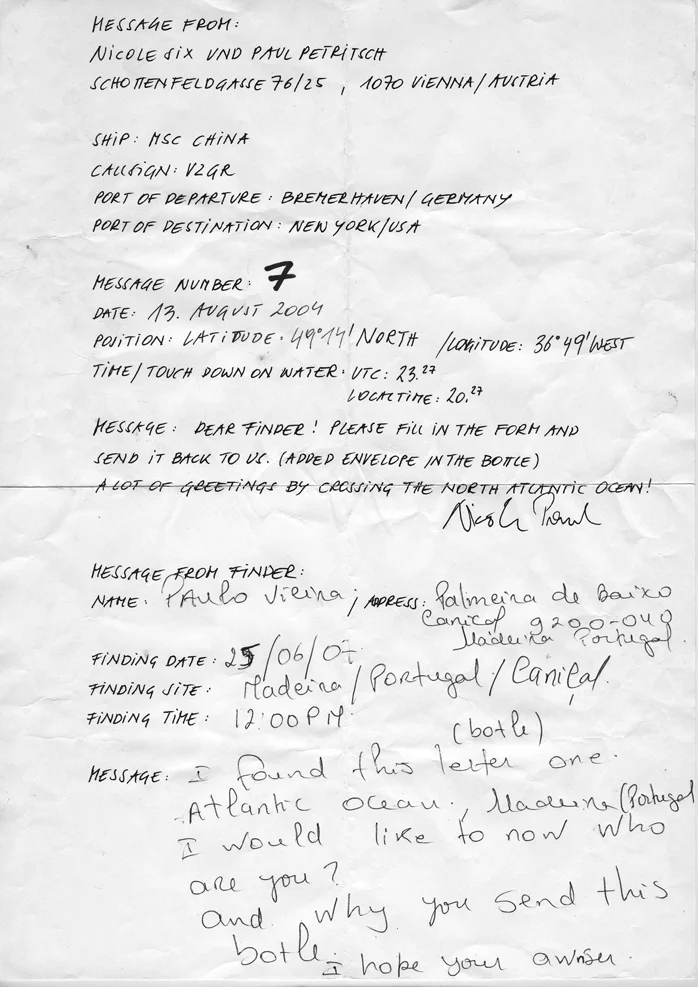 MESSAGE FROM:
NICOLE SIX UND PAUL PETRITSCH
SCHOTTENFELDGASSE 76/25 , 1070 VIENNA/AUSTRIA
SHIP: MSC CHINA
CALLSIGN: V2GR
PORT OF DEPARTURE: BREMERHAVEN/ GERMANY
PORT OF DESTINATION: NEW YORK/USA
MESSAGE NUMBER: 7
DATE: 13. AUGUST 2004
POSITION: LATITUDE: 49°14' NORTH /LOGITUDE: 36°49' WEST
TIME/TOUCH DOWN ON WATER: UTC: 23.27
LOCALTIME: 20.27
MESSAGE: DEAR FINDER! PLEASE FILL IN THE FORM AND
SEND IT BACK TO US. (ADDED ENVELOPE IN THE BOTTLE)
A LOT OF GREETINGS BY CROSSING THE NORTH ATLANTIC OCEAN!
Nicole Paul
MESSAGE FROM FINDER:
NAME: PAulo Vieira / ADDRESS: Palmeira de Baixo
Caniçal 9200-040
Madeira Portugal.
FINDING DATE: 25/06/07
FINDING SITE: Madeira/Portugal/Caniçal.
FINDING TIME: 12:00 PM.
(botle)
MESSAGE: I found this letter one.
Atlantic ocean., Madeira (Portugal
I would like to now who
are you?
and why you send this
botle.
I hope your awnser.